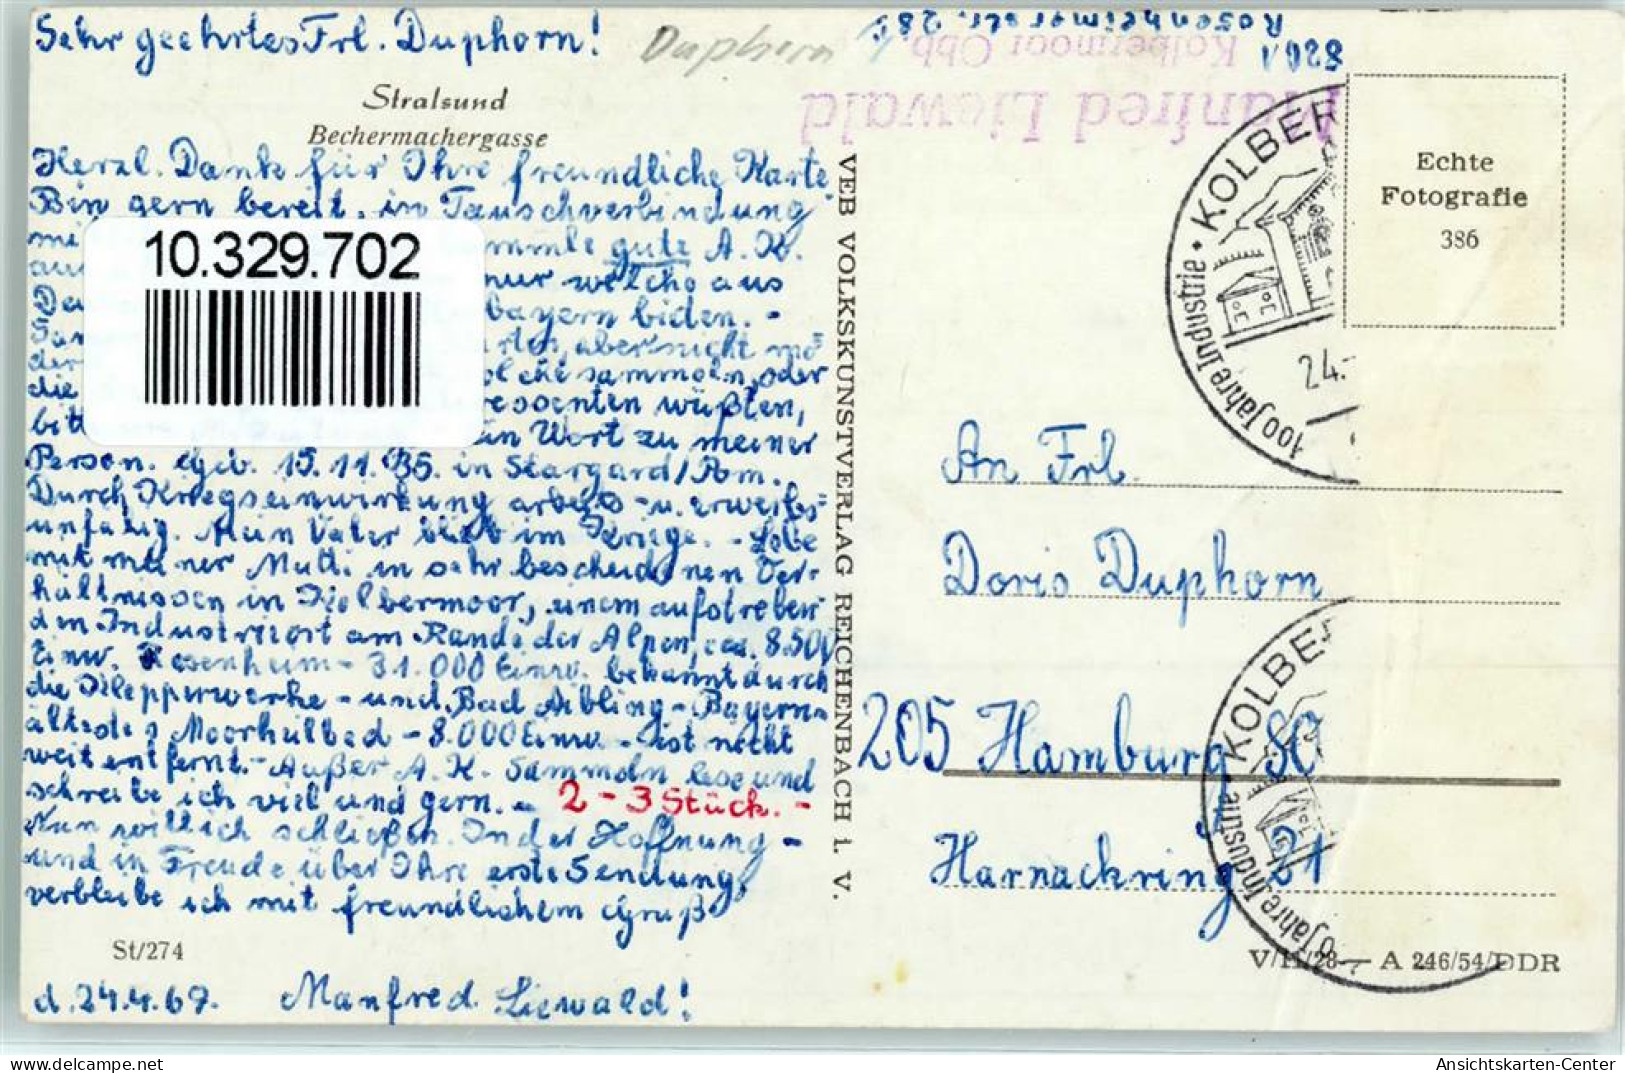 Sehr geehrtes Frl. Duphorn!
Duphorn
Stralsund
Bechermachergasse
Herzl. Dank für Ihre freundliche Karte
Bin gern bereit, in Tauschverbindung
gute A.K.
nur welche aus
bayern biden. -
aber nicht
sammeln, oder
wüßten,
ein Wort zu meiner
Person. Geb. 15.11.35. in Stargard/Pom.
Durch Kriegseinwirkung arbeits- u. erwerbs-
unfähig. Mein Vater blieb im Kriege. - Lebe
mit meiner Mutti in sehr bescheidenen Ver-
hältnissen in Kolbermoor, einem aufstreben-
den Industrieort am Rande der Alpen, ca. 8.500
Einw. Rosenheim - 31.000 Einw. bekannt durch
die Klepperwerke - und Bad Aibling - Bayerns
ältestes Moorheilbad - 8.000 Einw. - ist nicht
weit entfernt. - Außer A.K. Sammeln lese und
schreibe ich viel und gern. - 2 - 3 Stück. -
Nun will ich schließen. In der Hoffnung -
und in Freude über Ihre erste Sendung,
verbleibe ich mit freundlichem Gruß
St/274
d. 24.4.67. Manfred Liewald!
10.329.702
VEB VOLKSKUNSTVERLAG REICHENBACH i. V.
Manfred Liewald
8201 Kolbermoor Obb.
Rosenheimerstr. 28
Echte
Fotografie
386
KOLBER
100 Jahre Industrie
24.-
An Frl.
Doris Duphorn
205 Hamburg 80
Harnackring 21
KOLBE
0 Jahre Industrie
V/11/28 - A 246/54/DDR
Ansichtskarten-Center